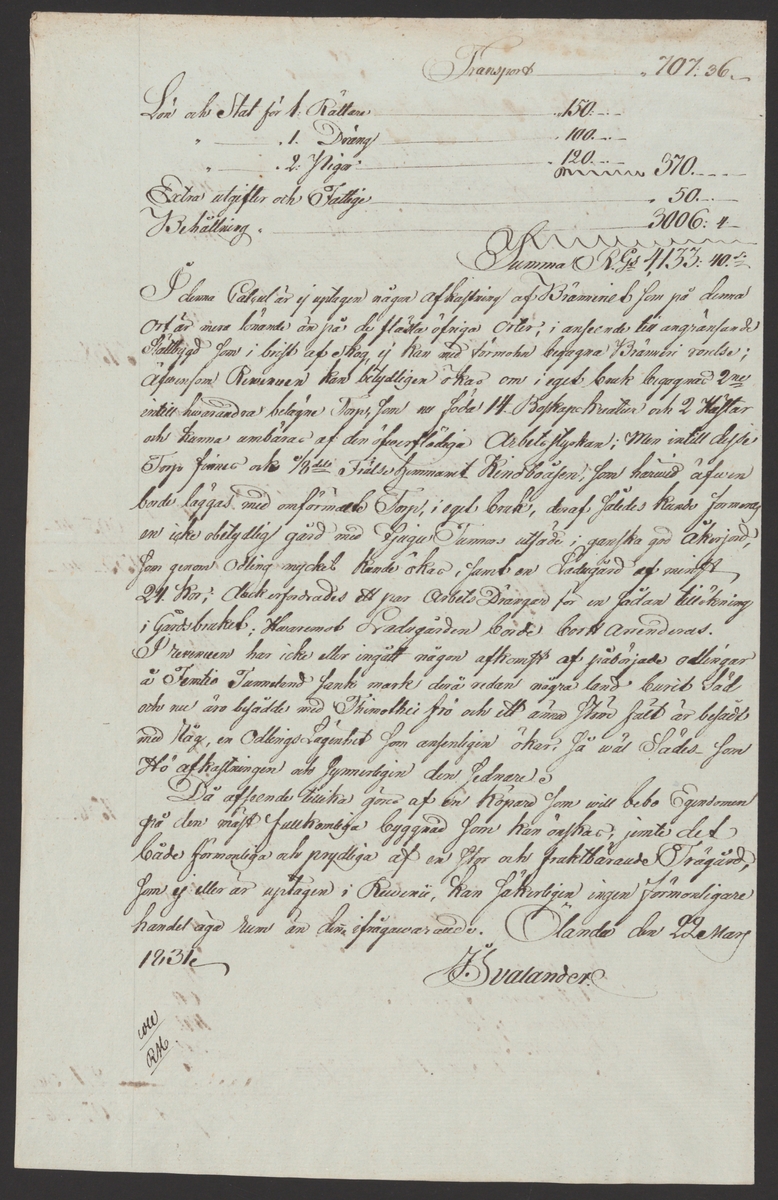 Transport „ 707: 36.
Lön och Stat för 1. Rättare „ 150. —
„ „ 1. Dräng „ 100. —
„ „ 2. Pigor „ 120. — 370. —
Extra utgifter och Fattige „ 50. —
Behållning „ 3006: 4
Summa RGs 4133: 40.
I denna Calcul är ej uptagen någon afkastning af Bränneriet som på denna
ort är mera lönande än på de flästa öfriga orter, i anseende till angränsande
Slättbygd som i brist af skog ej kan med förmohn begagna Bränneri rörelse;
äfwensom Revenuen kan betydligen ökas om i eget bruk begagnas 2ne
intill hwarandra belägne Torp, som nu föda 14 Boskaps kreatur och 2 Hästar
och kunna umbäras af den öfwerflödiga Arbetsstyrkan; Men intill desse
Torp finnes ock 1/3 dels Frälse Hemmanet Kindboåsen, som härwid äfwen
borde läggas med omförmälte Torp, i eget bruk, deraf således kunde formeras
en icke obetydlig gård med Tjugo Tunnors utsäde i ganska god Åkerjord,
som genom Odling mycket kunde ökas, samt en Ladugård af minst
24 Kor, dock erfordrades ett par Arbets Drängar för en sådan tillökning
i Gårdsbruket; Hwaremot Ladugården borde bort arenderas.
I revenuen har icke eller ingått någon afkomst af påbörjade odlingar
å Femtio Tunneland sank mark derå redan några land burit Säd
och nu äro besådde med Thimothei frö och ett ännu större fält är besådt
med Råg, en Odlings Lägenhet som ansenligen ökar, så wäl Sädes- som
Hö afkastningen och synnerligen den sednare.
Då afseende tillika göres af en köpare som will bebo Egendomen
på den mäst fullkomliga byggnad som kan önskas, jemte det
både förmonliga och prydliga af en stor och fruktbärande Trägård,
som ej eller är uptagen i Revenü, kan säkerligen ingen förmonligare
handel äga rum än den ifrågawarande. Ölanda den 22 Mars
1831.
J Svalander.